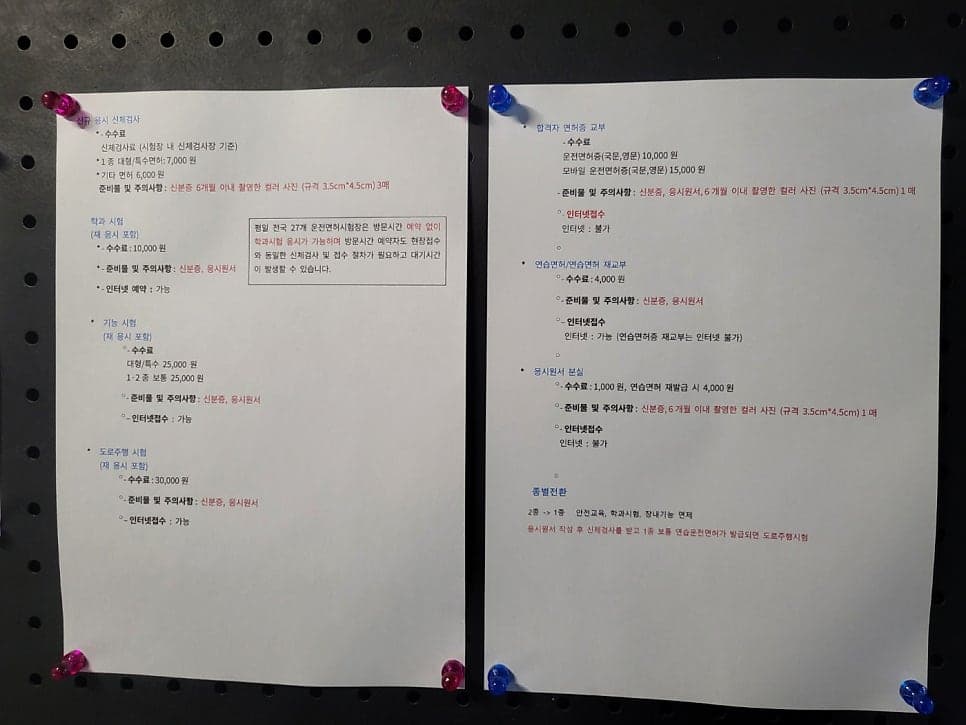 신규 응시 신체검사
*- 수수료
신체검사료 (시험장 내 신체검사장 기준)
*1종 대형/특수면허: 7,000 원
*기타 면허 6,000 원
준비물 및 주의사항: 신분증 6개월 이내 촬영한 컬러 사진 (규격 3.5cm*4.5cm) 3매
학과 시험
(재 응시 포함)
*- 수수료: 10,000 원
*- 준비물 및 주의사항: 신분증, 응시원서
*- 인터넷 예약 : 가능
평일 전국 27개 운전면허시험장은 방문시간 예약 없이
학과시험 응시가 가능하며 방문시간 예약자도 현장접수
와 동일한 신체검사 및 접수 절차가 필요하고 대기시간
이 발생할 수 있습니다.
• 기능 시험
(재 응시 포함)
○- 수수료
대형/특수 25,000 원
1·2종 보통 25,000 원
○- 준비물 및 주의사항: 신분증, 응시원서
○- 인터넷접수 : 가능
• 도로주행 시험
(재 응시 포함)
○- 수수료: 30,000 원
○- 준비물 및 주의사항: 신분증, 응시원서
○- 인터넷접수 : 가능
• 합격자 면허증 교부
- 수수료
운전면허증(국문,영문) 10,000 원
모바일 운전면허증(국문,영문) 15,000 원
- 준비물 및 주의사항: 신분증, 응시원서, 6개월 이내 촬영한 컬러 사진 (규격 3.5cm*4.5cm) 1매
○- 인터넷접수
인터넷 : 불가
○
• 연습면허/연습면허 재교부
○- 수수료: 4,000 원
○- 준비물 및 주의사항: 신분증, 응시원서
○- 인터넷접수
인터넷 : 가능 (연습면허증 재교부는 인터넷 불가)
○
• 응시원서 분실
○- 수수료: 1,000 원, 연습면허 재발급 시 4,000 원
○- 준비물 및 주의사항: 신분증, 6개월 이내 촬영한 컬러 사진 (규격 3.5cm*4.5cm) 1매
○- 인터넷접수
인터넷 : 불가
○
종별전환
2종 -> 1종 안전교육, 학과시험, 장내기능 면제
응시원서 작성 후 신체검사를 받고 1종 보통 연습운전면허가 발급되면 도로주행시험